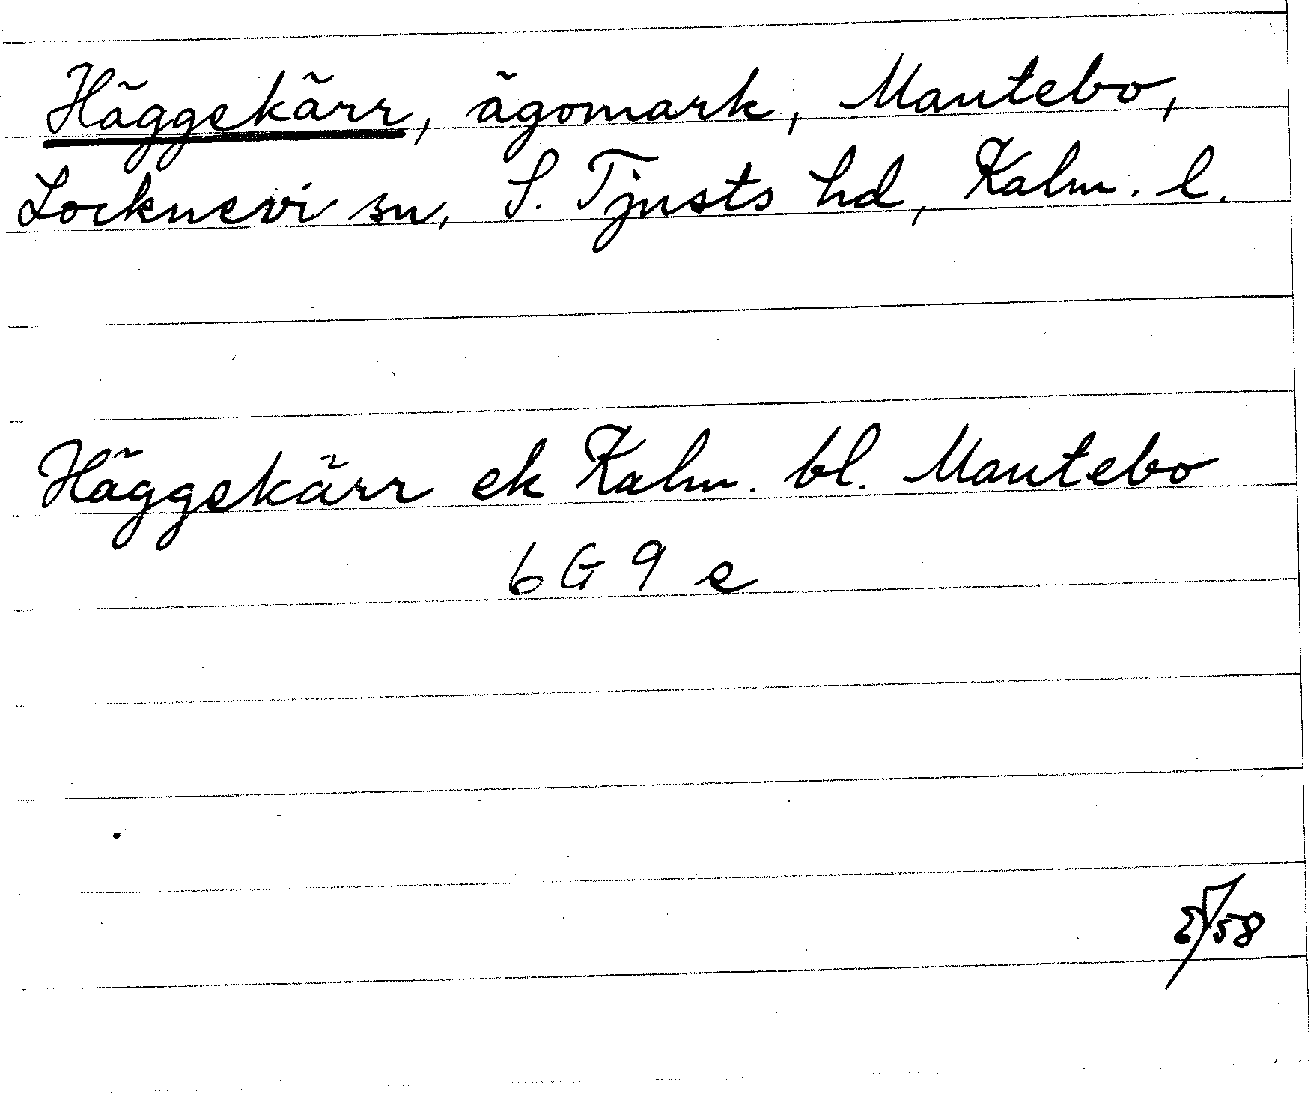 Häggekärr, ägomark, Mantebo,
Locknevi sn, S. Tjusts hd, Kalm. l.
Häggekärr ek Kalm. bl. Mantebo
6 G 9 e